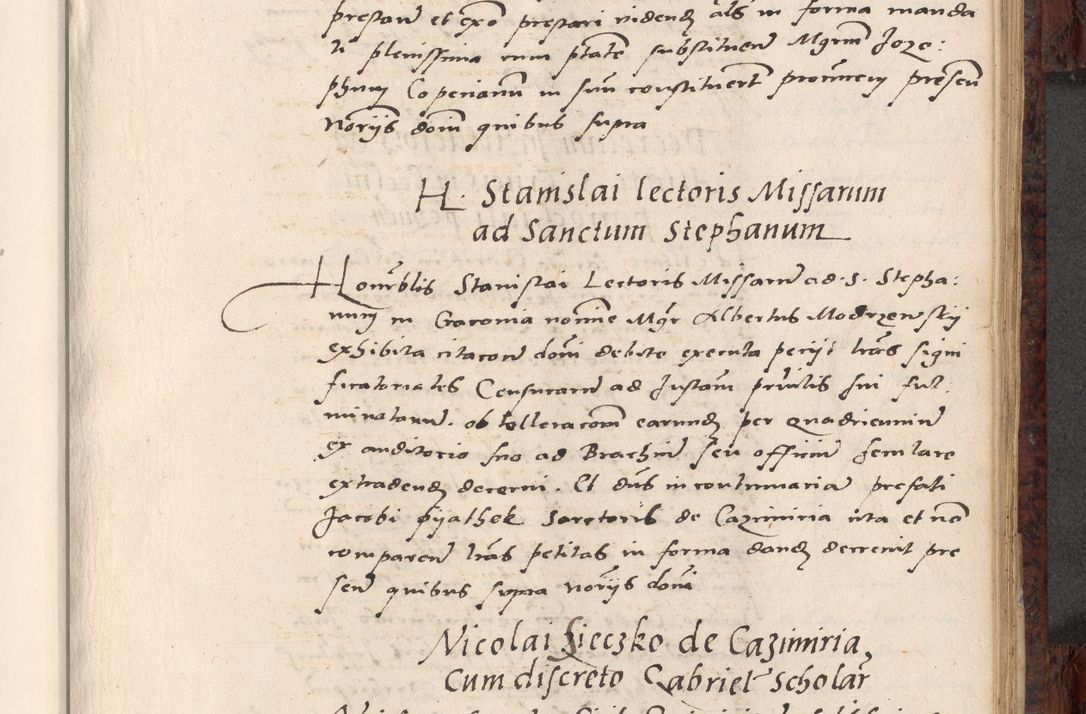 prestare et extunc prestari videndum als in forma manda
ti plenissima cum ptate substituen Mgrm Joze:
phum Copecianum in suu constituert procurem presen
Noriis domi quibus supra
H. Stanislai lectoris Missarum
ad Sanctum Stephanum
Honrblis Stanislai Lectoris Missarum ad. S. Stepha:
num in Gracovia nomine Mgr Albertus Modrzewskij
exhibita citacone domi debite executa periit lras signi
ficatoriales Censurarum ad Instam princlis sui ful:
minatarum. ob tolleracom earundem per quadriennium
ex auditorio suo ad Brachium seu officium seculare
extradendum decerni. Et dns in contumaciam prefati
Jacobi pijathek Sartoris de Cazimiria cita et non
comparen lras petitas in forma dandas decrevit pre
sen quibus supra Noriis domi
Nicolai Sieczko de Cazimiria,
Cum discreto Gabriel Scholar